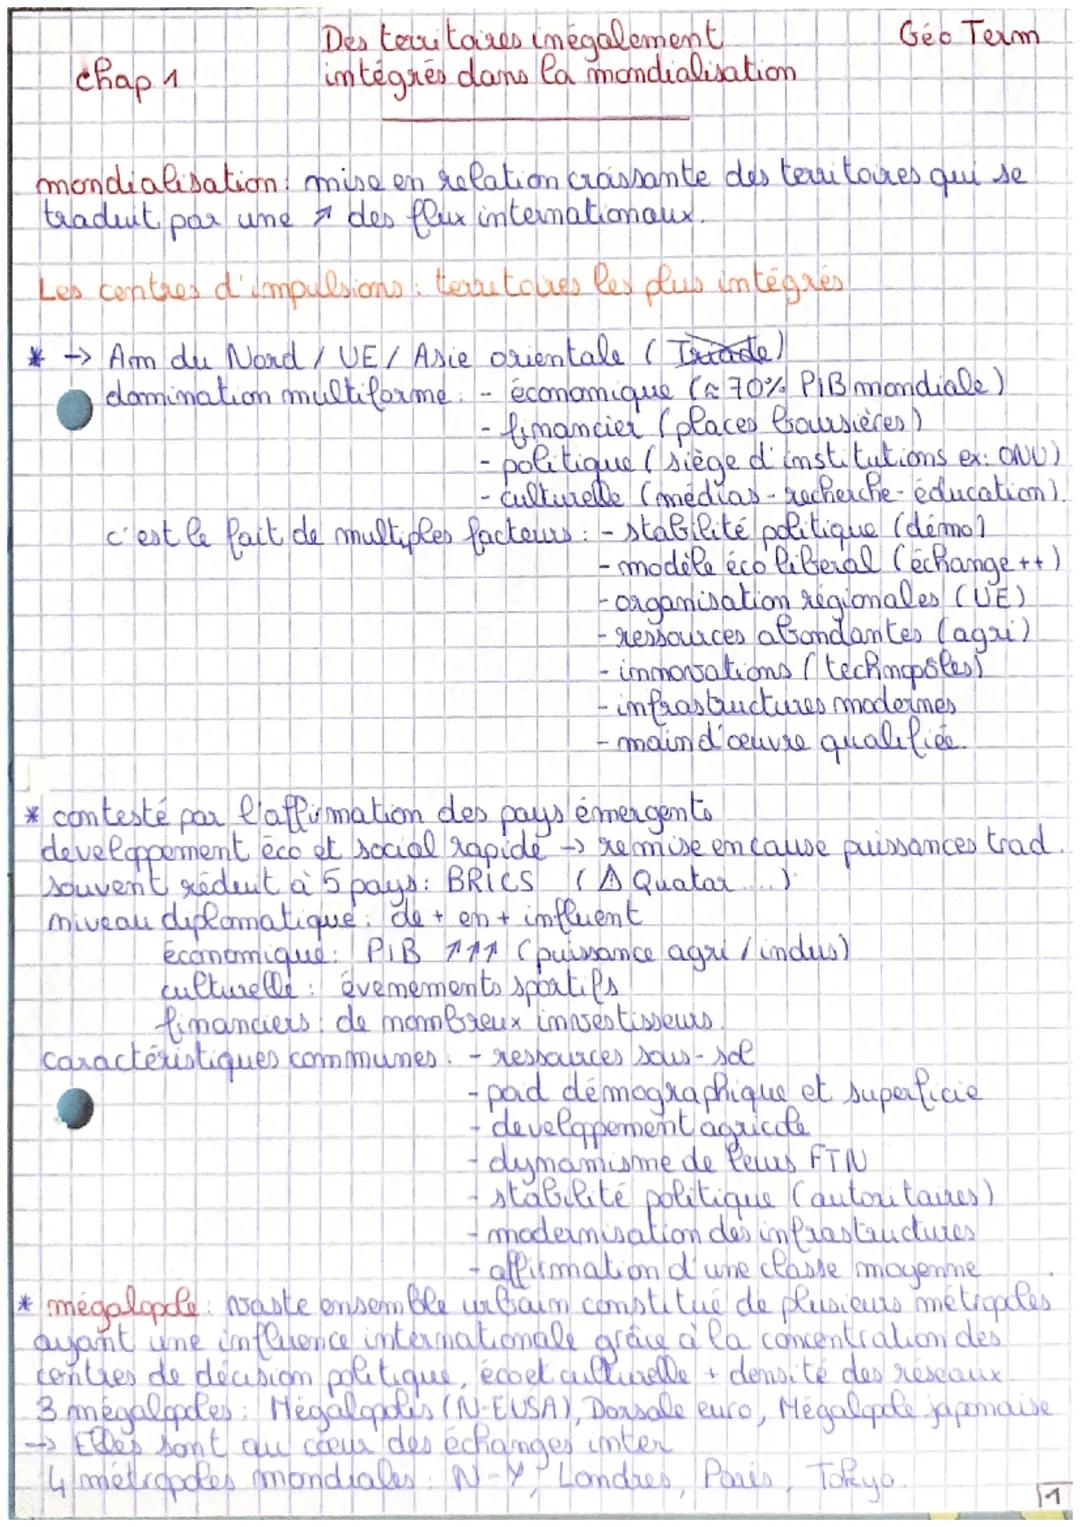 Des territoires inégalement
Géo Term
chap 1
intégrés dans la mondialisation
mondialisation : mise en relation croissante des territoires qui se
traduit par une ↗ des flux internationaux.
Les centres d'impulsions : territoires les plus intégrés
* → Am du Nord / UE / Asie orientale ( Triade )
domination multiforme : - économique (≈ 70% PIB mondiale)
- financier (places boursières)
- politique (siège d'institutions ex: ONU)
- culturelle (médias - recherche - éducation).
c'est le fait de multiples facteurs : - stabilité politique (démo)
- modèle éco libéral (échange ++)
- organisation régionales (UE)
- ressources abondantes (agri)
- innovations (technopôles)
- infrastructures modernes
- main d'œuvre qualifiée.
* contesté par l'affirmation des pays émergents
developpement éco et social rapide → remise en cause puissances trad.
souvent réduit à 5 pays : BRICS ( ⚠ Quatar ...)
niveau diplomatique : de + en + influent
économique : PIB ↗↗↗ (puissance agri / indus)
culturelle : évenements sportifs
financiers : de nombreux investisseurs.
caractéristiques communes : - ressources sous-sol
- poid démographique et superficie
- developpement agricole
- dynamisme de leurs FTN
- stabilité politique (autoritaires)
- modernisation des infrastructures
- affirmation d'une classe moyenne
* mégalopole : vaste ensemble urbain constitué de plusieurs métropoles
ayant une influence internationale grâce à la concentration des
centres de décision politique, éco et culturelle + densité des réseaux.
3 mégalopoles : Mégalopolis (N-EUSA), Dorsale euro, Mégalopole japonaise
→ Elles sont au cœur des échanges inter
4 métropoles mondiales : N-Y, Londres, Paris, Tokyo.
1